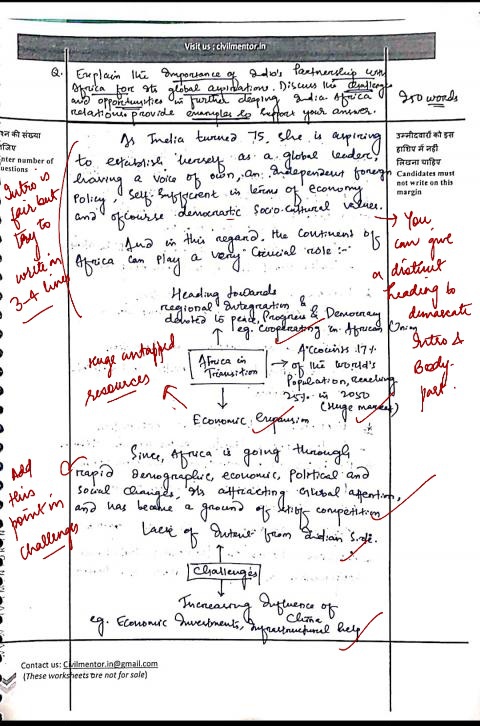 Visit us : civilmentor.in
Q. Explain the Importance of India's Partnership with
Africa for its global aspirations. Discuss the challenges
and opportunities in further deeping India Africa
relations. provide examples to support your answer.
250 words
श्न की संख्या
nter number of
uestions
उम्मीदवारों को इस
हाशिए में नहीं
लिखना चाहिए
Candidates must
not write on this
margin
As India turned 75, she is aspiring
to establish herself as a global leader,
having a voice of own, an Independent foreign
Policy, Self Sufficient in terms of economy
and ofcourse democratic Socio-cultural values.
And in this regard, the continent of
Africa can play a very crucial role :-
Intro is
fair but
try to
write in
3-4 lines
→ You
can give
a distinct
heading to
demarcate
Intro &
Body
part.
Heading towards
regional Integration &
devoted to peace, Progress & Democracy
eg. Cooperating in African Union
Huge untapped
resources
Africa in
Transition
→ Accounts 17%
of the world's
Population, reaching
25% in 2050
(Huge market)
Economic Expansion
Since, Africa is going through
rapid demographic, economic, Political and
social changes, its attracting Global attention,
and has became a ground of stiff competition
Add
this
point in
challenges
Lack of Interest from Indian side.
Challenges
Increasing Influence of
China
eg. Economic Investments, Infrastructural help
Contact us: Civilmentor.in@gmail.com
(These worksheets are not for sale)